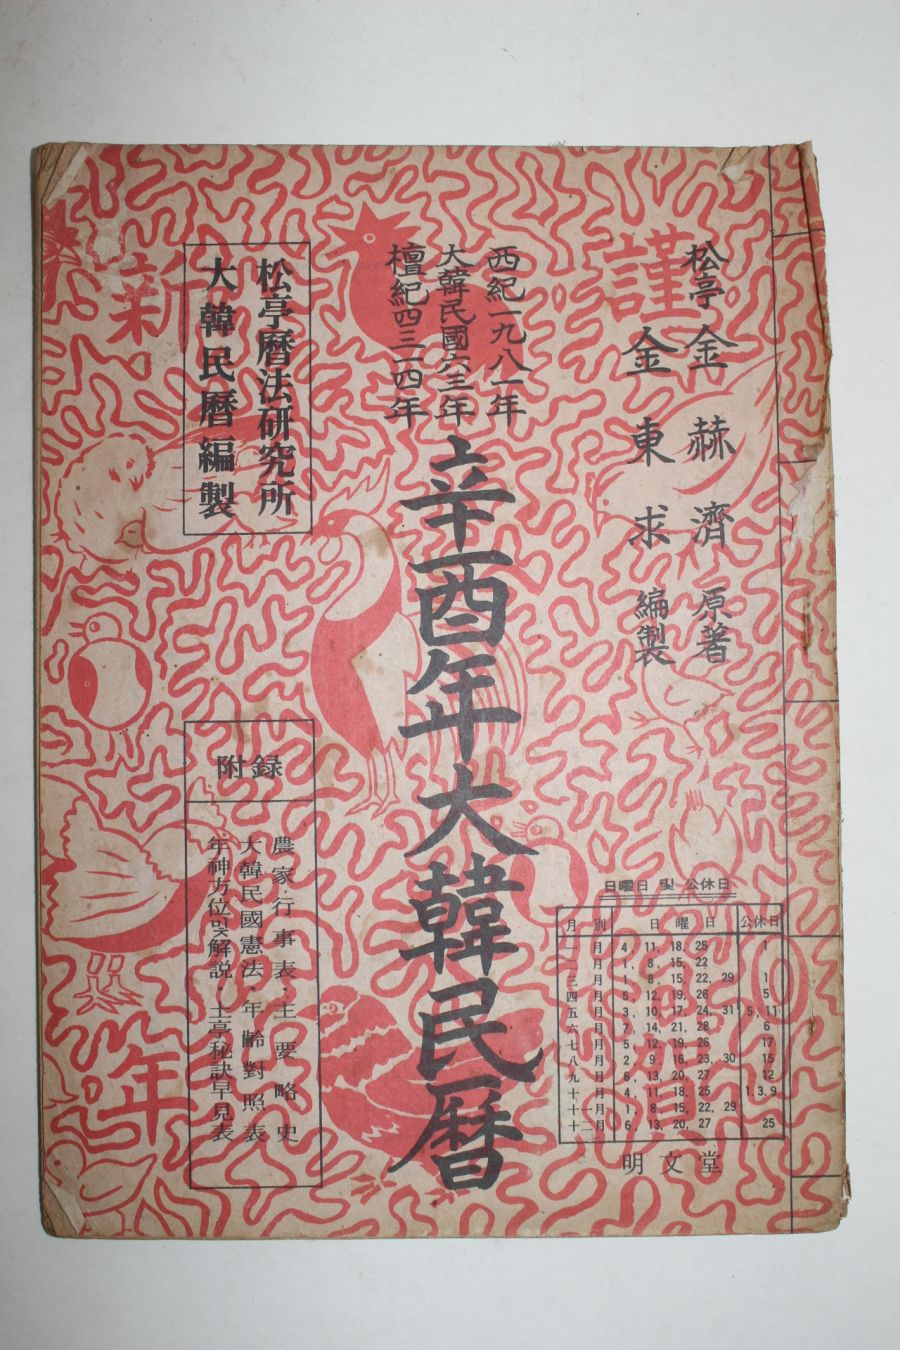 松亭 金赫濟 原著
金東求 編製
西紀一九八一年
大韓民國六三年
檀紀四三一四年
辛酉年大韓民曆
松亭曆法研究所
大韓民曆編製
謹
賀
新
年
附錄
農家行事表·主要略史
大韓民國憲法·年齡對照表
年神方位및解説·土亭秘訣早見表
日曜日 및 公休日
月別 日曜日 公休日
一月 4, 11, 18, 25 1
二月 1, 8, 15, 22
三月 1, 8, 15, 22, 29 1
四月 5, 12, 19, 26 5
五月 3, 10, 17, 24, 31 5, 11
六月 7, 14, 21, 28 6
七月 5, 12, 19, 26 17
八月 2, 9, 16, 23, 30 15
九月 6, 13, 20, 27 12
十月 4, 11, 18, 25 1.3.9
十一月 1, 8, 15, 22, 29
十二月 6, 13, 20, 27 25
明文堂